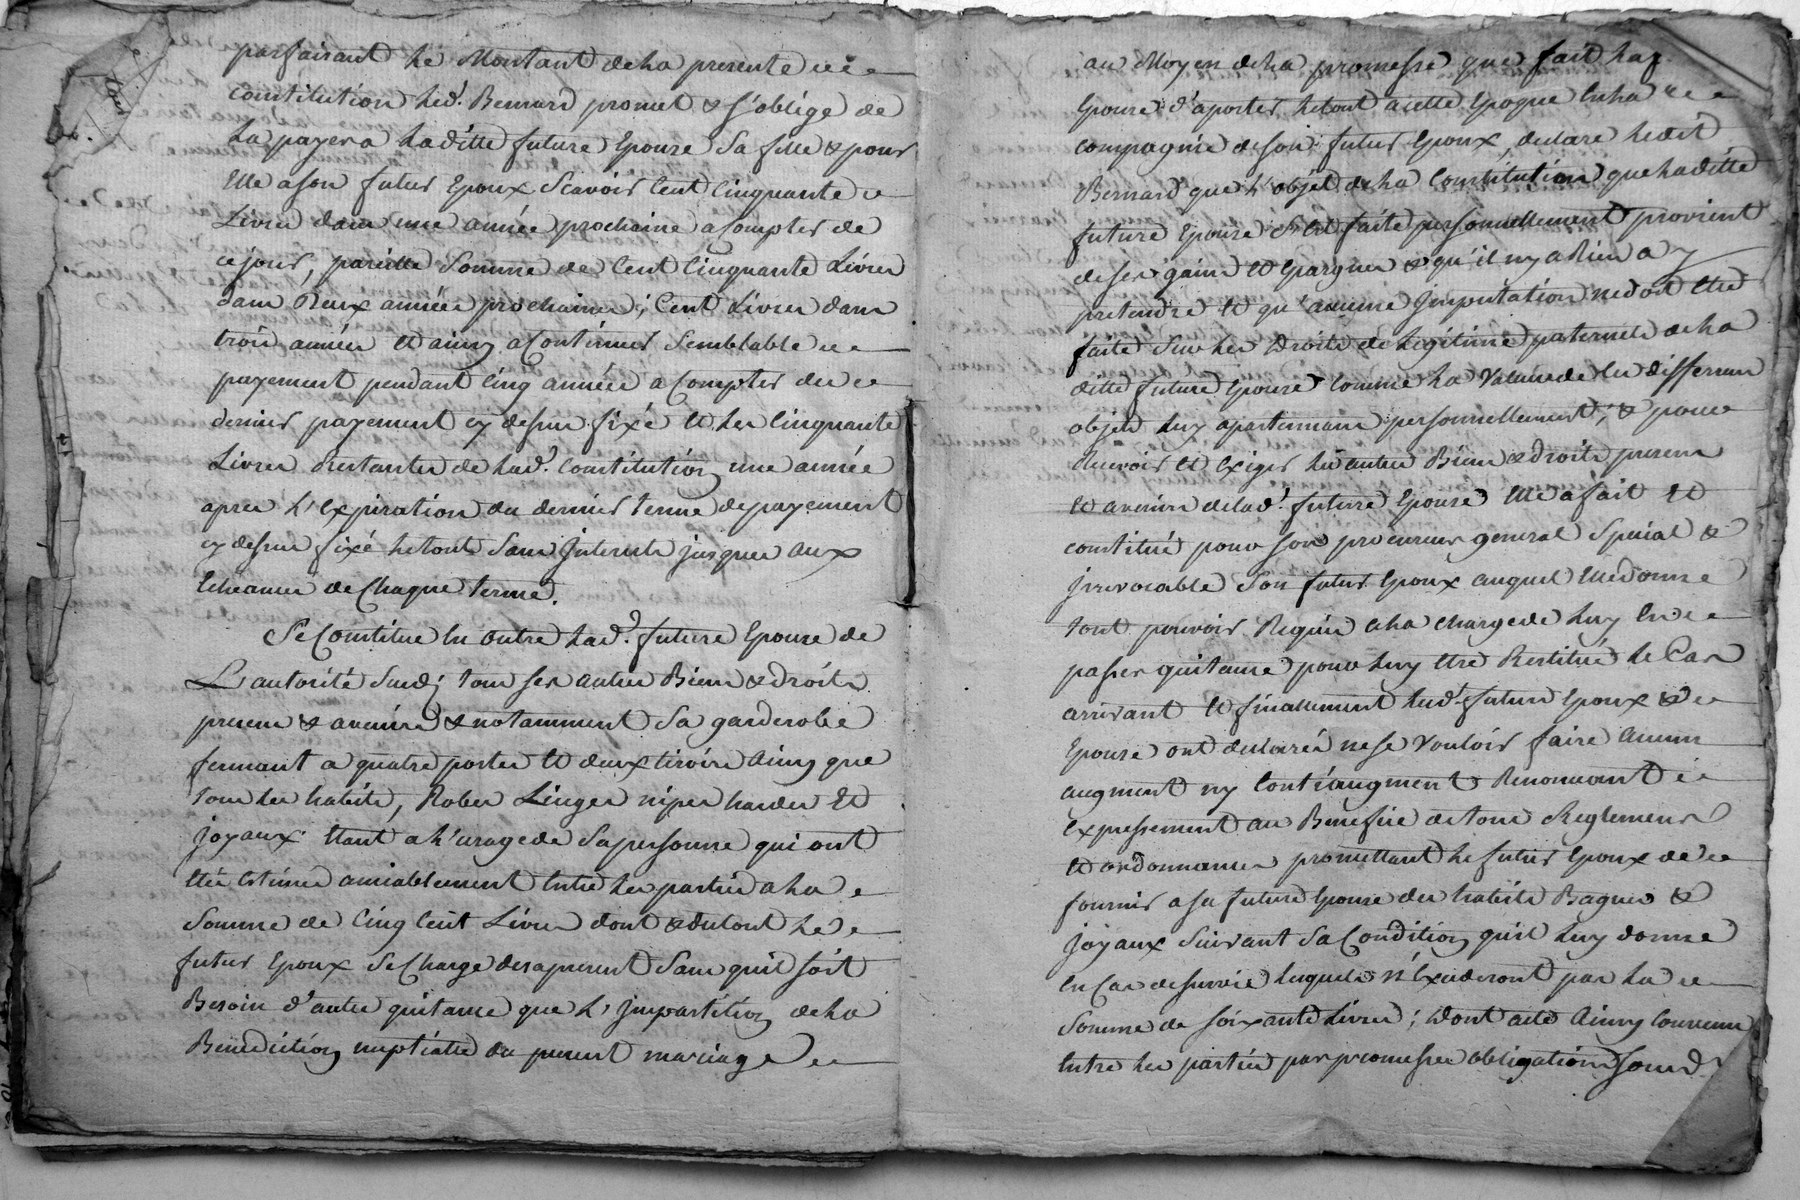 parfaisant le Montant de la presente
constitution led. Bernard promet & s'oblige de
la payer a laditte future Epouse sa fille & pour
Elle a son futur Epoux Scavoir Cent Cinquante
Livres dans une année prochaine a Compter de
ce jour, pareille Somme de Cent Cinquante Livres
dans Deux années prochaines; Cent Livres dans
trois années et ainsy a Continuer Semblable
payement pendant Cinq années a Compter du
dernier payement cy dessus fixé et les Cinquante
Livres Restantes de lad. Constitution une année
apres l'Expiration du dernier terme de payement
cy dessus fixé le tout Sans Interests jusques aux
Echeances de Chaque terme.
Se Constitue En outre lad. future Epouse de
L'autorité Susd. tous ses autres Biens & droits
presens & avenirs & notamment Sa garderobe
fermant a quatre portes et deux tiroirs Ainsy que
tous les habits, Robes Linges nipes hardes Et
Joyaux Etant a l'usage de Sa personne qui ont
Eté Estimés amiablement Entre les parties a la
Somme de Cinq Cent Livres dont & du tout le
futur Epoux Se Charge des apresent Sans quil soit
Besoin d'autre quitance que l'Impartition de la
Benediction nuptiale du present mariage
au Moyen de la promesse que fait la
Epouse d'aporter le tout a cette Epoque En la
compagnie de son futur Epoux, declare ledit
Bernard que l'objet de la Constitution que laditte
future Epouse s'est faite personnellement provient
de ses gains et Epargnes & qu'il ny a Rien a y
pretendre et qu'aucune Imputation ne doit Etre
faite Sur les Droits de Legitime paternels de la
ditte future Epouse Comme la Valeur de Ces differens
objets luy apartenans personnellement; & pour
Recevoir et Exiger les autres Biens & droits presens
et avenirs de lad. future Epouse Elle a fait Et
constitué pour son procureur general Special &
Irrevocable Son futur Epoux auquel Elle donne
tout pouvoir Requis a la charge de luy En
passer quitance pour luy Etre Restitué le Cas
arrivant et finallement lesd. futurs Epoux &
Epouse ont declarés ne se Vouloir faire Aucun
augment ny Contr'augment Renoncant
Expressement au Benefice de tous Reglemens
et ordonnances promettant le futur Epoux de
fournir a sa future Epouse des habits Bagues &
Joyaux Suivant Sa Condition quil luy donne
En Cas de survie lesquels n'Excederont pas la
Somme de soixante Livres; Dont acte Ainsy Convenu
Entre les parties par promesses obligations soumd.